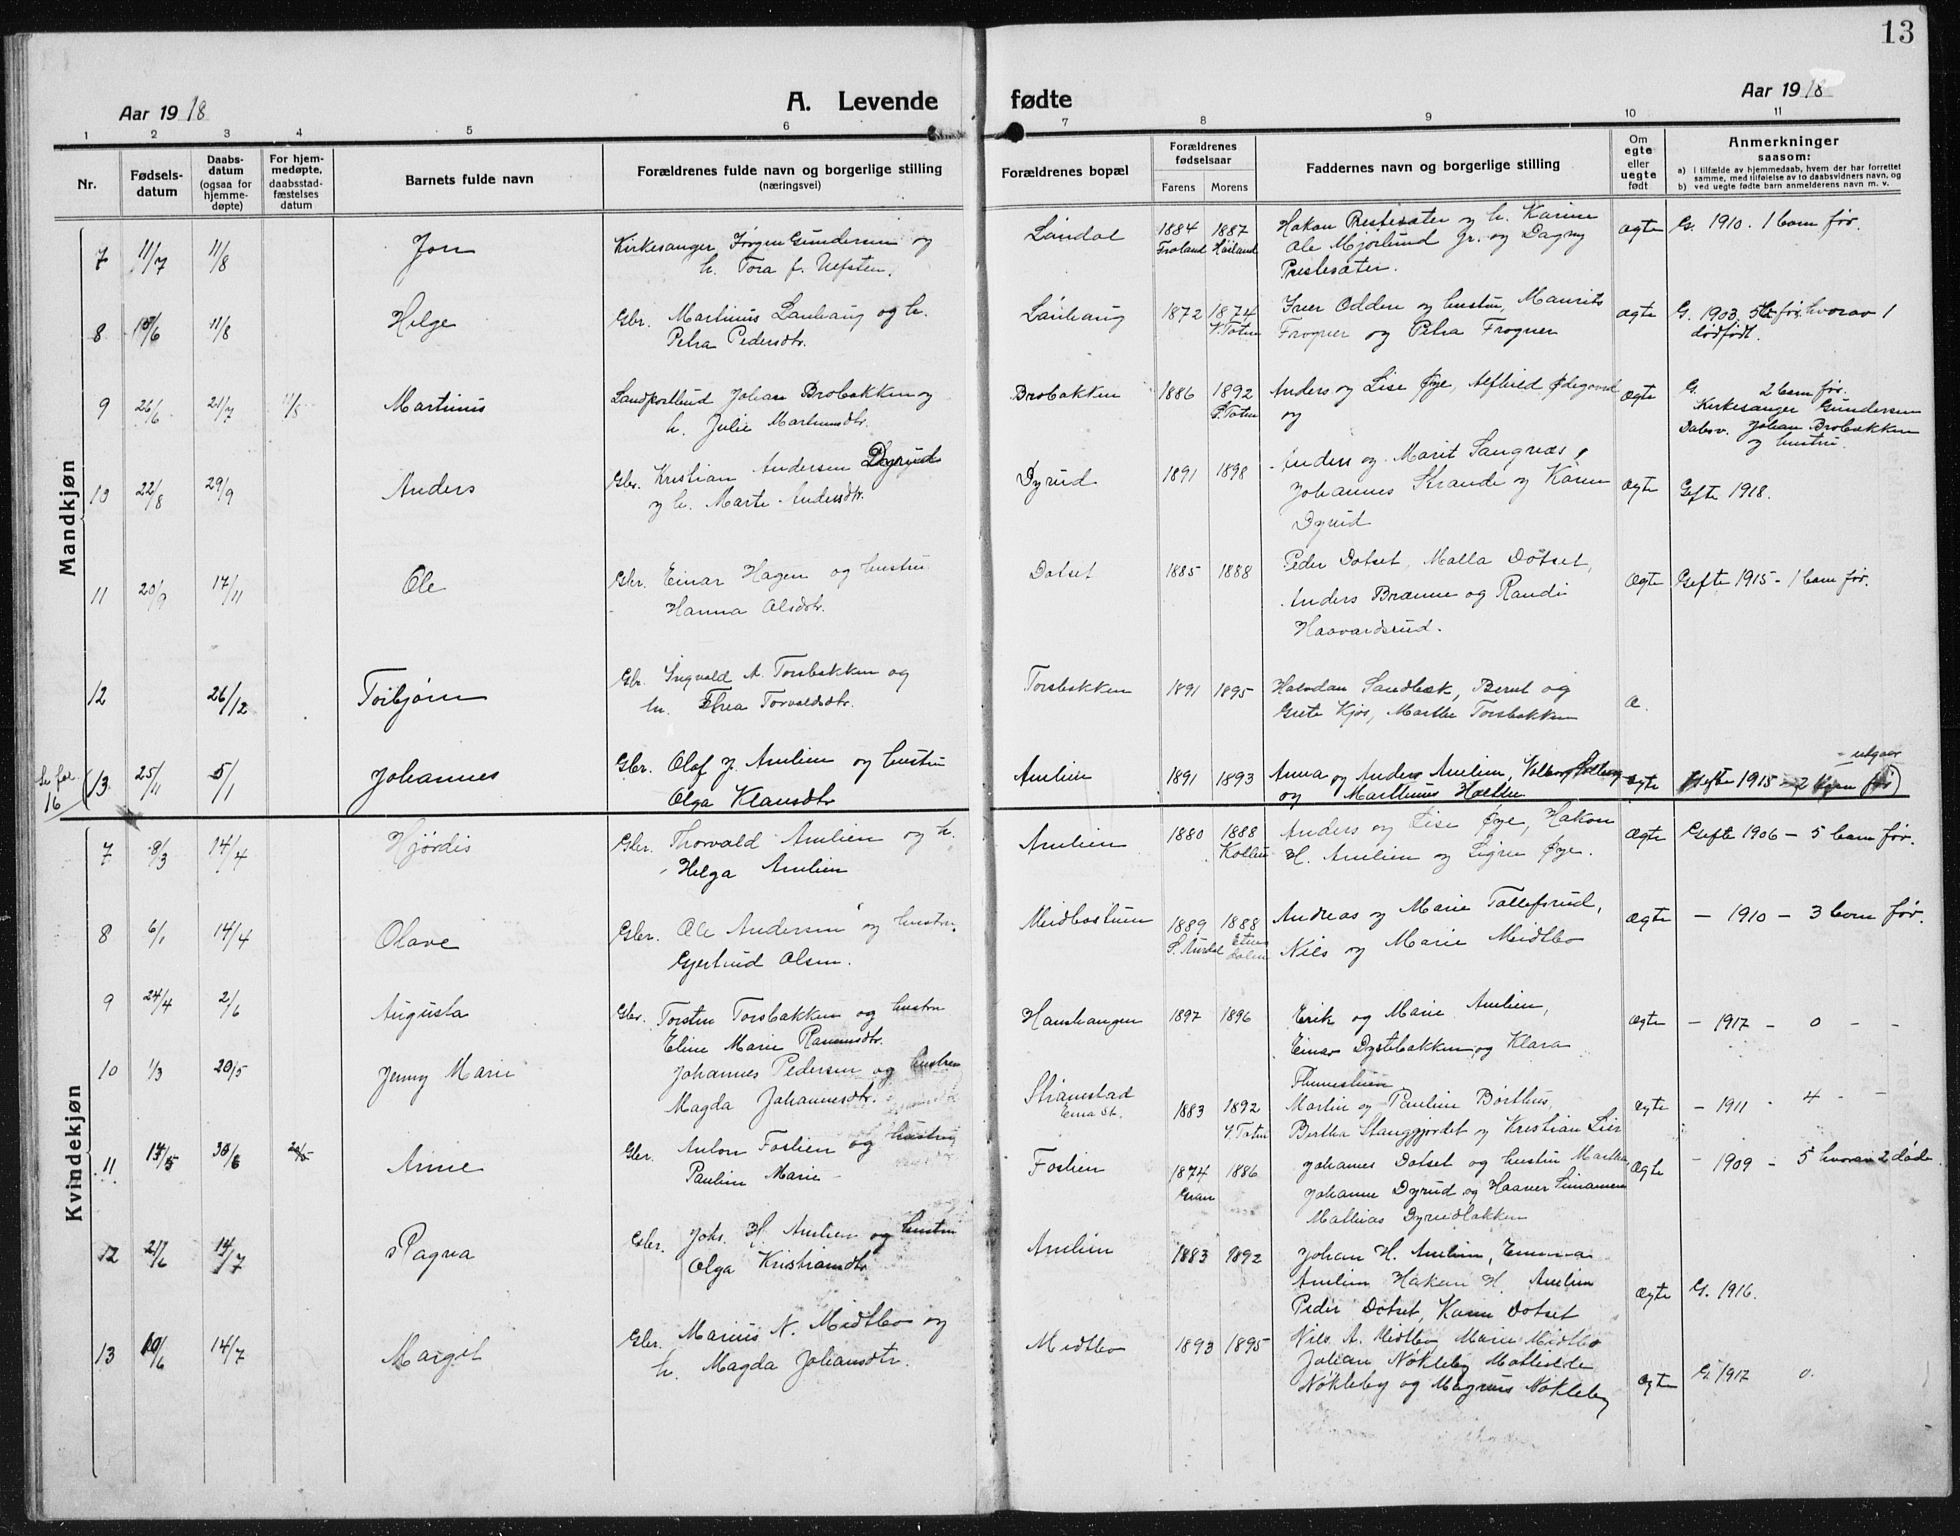 13
Aar 1918
A. Levende fødte
Aar 1918
1 2 3 4 5 6 7 8 9 10 11
Nr.
Fødsels-
datum
Daabs-
datum
(ogsaa for
hjemme-
døpte)
For hjem-
medøpte,
daabsstad-
fæstelses
datum
Barnets fulde navn
Forældrenes fulde navn og borgerlige stilling
(næringsvei)
Forældrenes bopæl
Forældrenes
fødselsaar
Farens Morens
Faddernes navn og borgerlige stilling
Om
egte
eller
uegte
født
Anmerkninger
saasom:
a) i tilfælde av hjemmedaab, hvem der har forrettet
samme, med tilføielse av to daabsvidners navn, og
b) ved uegte fødte barn anmelderens navn m. v.
Mandkjøn
7 11/7 11/8 Jon Kirkesanger Jørgen Gundersen og
h. Tora f. Uefsten.
Landal 1884 1887
Froland Høiland
Hakon Prestesæter og h. Karine
Ole Mjørlund jr. og Dagny
Prestesæter.
ægte G. 1910. 1 barn før.
8 11/8 Helge Gbr. Martinus Lauhaug og h.
Petra Pedersdtr.
Lauhaug 1872 1874
V. Toten
Iver Odden og hustru, Maurits
Frogner og Petra Frogner
ægte G. 1903. før, hvorav 1
dødfødt.
9 26/6 21/7 11/8 Martinus Landpostbud Johan Brobakken og
h. Julie Martinusdtr.
Brobakken 1886 1892
Anders og Lise Øye, Alfhild Ødegaard
og
ægte G. 2 barn før.
Kirkesanger Gundersen
Dabsv. Johan Brobakken
og hustru
10 22/8 29/9 Anders Gbr. Kristian Andersen Dyrud
og h. Marte Andersdtr.
Dyrud 1891 1898
Anders og Marit Sangnæs,
Johannes Strande og Karen
Dyrud
ægte Gefte 1918.
11 20/9 17/11 Ole Gbr. Einar Hagen og hustru
Hanna Olsdtr.
Dotset 1885 1888
Peder Dotset, Malla Dotset,
Anders Brænne og Randi
Haavardsrud.
ægte Gefte 1915 - 1 barn før.
12 26/12 Torbjørn Gbr. Ingvald A. Torsbakken og
h. Thea Torvaldsdtr.
Torsbakken 1891 1895
Halvdan Sandbæk, Bernt og
Grete Kjøs, Marthe Torsbakken
æ.
16
(13 25/11 5/1 Johannes Gbr. Olof J. Amlien og hustru
Olga Klausdtr
Amlien 1891 1893
Anna og Anders Amlien,
og Marthinus
ægte Gefte 1915 - 2 barn før)
- utgaar
Kvindekjøn
7 8/3 14/4 Hjørdis Gbr. Thorvald Amlien og h.
Helga Amlien
Amlien 1880 1888
Kolbu
Anders og Lise Øye, Hakon
H. Amlien og Signe Øye.
ægte Gefte 1906 - 5 barn før.
8 6/1 14/4 Olave Gbr. Ole Andersen og hustru
Gjertrud Olsen.
Midbøstuen 1889 1888
S. Aurdal Etne
dalen
Andreas og Marie Tollefsrud,
Nils og Marie Midtbø
ægte - 1910 - 3 barn før.
9 24/4 2/6 Augusta Gbr. Torsten Torsbakken og hustru
Eline Marie
Haushaugen 1897 1896
Erik og Marie Amlien,
Einar Dystebakken og Klara
Thunestuen
ægte - 1917 - 0 - -
10 1/3 20/5 Jenny Marie Johannes Pedersen og hustru
Magda Johannesdtr.
Strømstad
Eina St.
1883 1892
V. Toten
Martin og Pauline Børthus,
Bertha Stanggjordet og Kristian Lier
ægte - 1911 - 4 - -
11 30/6 Anne Gbr. Anton Foslien og hustru
Pauline Marie
Foslien 1874 1886
Gran
Johannes Dotset og hustru Martha,
Johanne Dyrud og Haaver Simensen
Mathias Dyrudbakken
ægte - 1909 - 5 hvorav 2 døde
12 14/7 Ragna Gbr. Johs. H. Amlien og hustru
Olga Kristiansdtr
Amlien 1883 1892
Johan H. Amlien, Emma
Amlien Hakon H. Amlien
Peder Dotset, Karen Dotset
ægte G. 1916.
13 10/6 14/7 Margit Gbr. Marius N. Midtbø og
h. Magda Johansdtr.
Midtbø 1893 1895
Nils A. Midtbø Marie Midtbø
Johan Nøkleby Mathilde
Nøkleby og Magnus Nøkleby
ægte G. 1917 0.